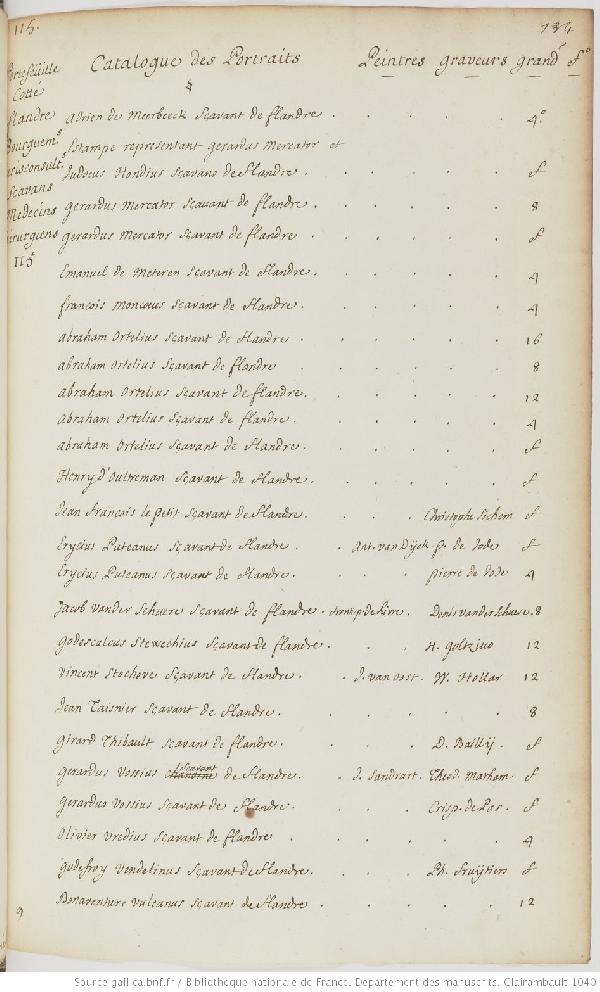 115. 734
Portefeüille Catalogue des Portraits Peintres graveurs grandr fo
Cotté
flandre Adrien de Meerbeeck Sçavant de flandre . . . . . 4o
Bourguems Estampe representant gerardus Mercator et
Jurisconsults Judocus Hondius Sçavans de flandre . . . . . f
Sçavans
Medecins gerardus Mercator Sçavant de flandre . . . . . 8
Chirurgiens gerardus Mercator Sçavant de flandre . . . . . f
115
Emanuel de Meteren Sçavant de flandre . . . . . 4
françois Moncæus Sçavant de flandre . . . . . 4
abraham Ortelius Sçavant de flandre . . . . . 16
abraham Ortelius Sçavant de flandre . . . . 8
abraham Ortelius Sçavant de flandre . . . . . 12
abraham Ortelius Sçavant de flandre . . . . . 4
abraham Ortelius Sçavant de flandre . . . . . f
Henry D'Oultreman Sçavant de flandre . . . . . f
Jean François le petit Sçavant de flandre . . . Christophe Sichem f
Erycius Puteanus Sçavant de flandre . . Ant. van Dijck p. de Jode f
Erycius Puteanus Sçavant de flandre . . . pierre de Jode 4
Jacob vander Schuere Sçavant de flandre . 8
godescalcus Stewechius Sçavant de flandre . . . H. goltzius 12
Vincent Stochove Sçavant de flandre . . J. van oost . W. Hollar 12
Jean Taisnier Sçavant de flandre . . . . . 8
girard Thibault Sçavant de flandre . . . D. Baillij . f
gerardus Vossius chanoine Sçavant de flandre . . J. Sandrart . Theod. Matham f
gerardus Vossius Sçavant de flandre . . . Crisp. de Pas . f
Olivier Vredius Sçavant de flandre . . . . . 4
godefroy Vendelinus Sçavant de flandre . . . Ph. Fruijtiers f
Bonaventure Vulcanus Sçavant de flandre . . . . . 12
9
Source gallica.bnf.fr / Bibliothèque nationale de France. Département des manuscrits. Clairambault 1040